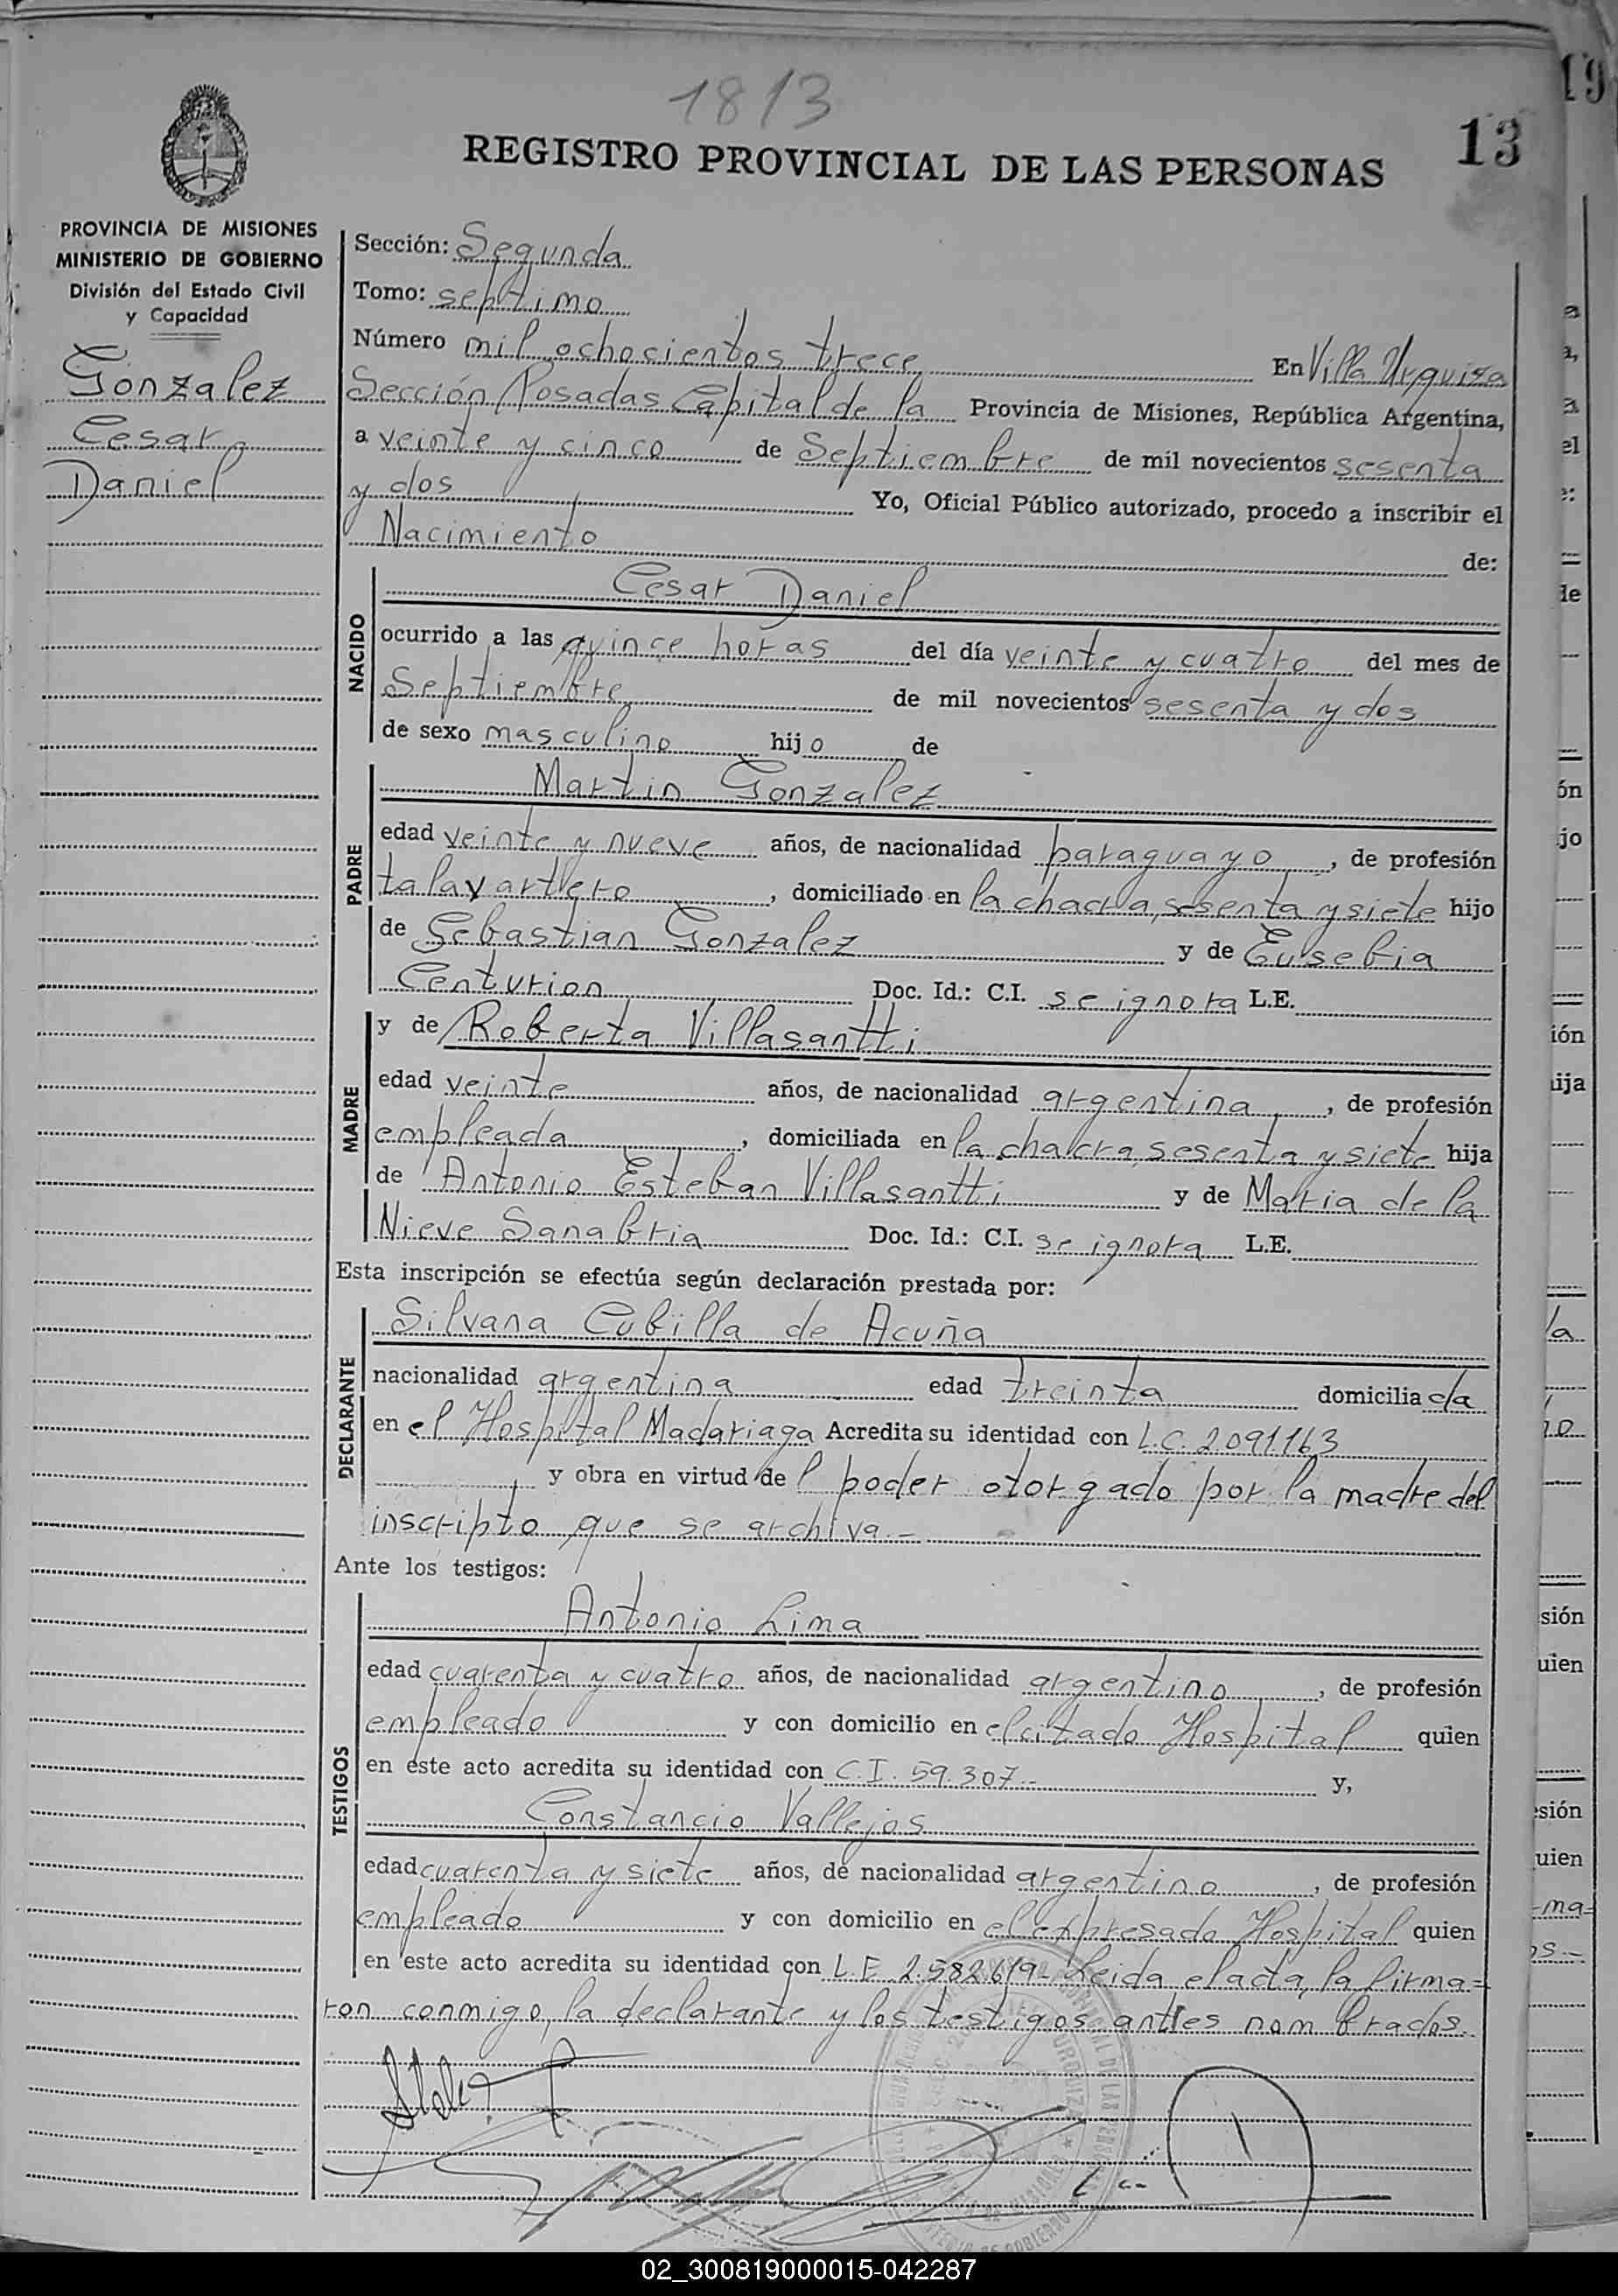 1813
13
REGISTRO PROVINCIAL DE LAS PERSONAS
PROVINCIA DE MISIONES
MINISTERIO DE GOBIERNO
División del Estado Civil
y Capacidad
Gonzalez
Cesar
Daniel
Sección: Segunda
Tomo: septimo
Número mil ochocientos trece En Villa Urquiza
Sección Posadas Capital de la Provincia de Misiones, República Argentina,
a veinte y cinco de Septiembre de mil novecientos sesenta
y dos Yo, Oficial Público autorizado, procedo a inscribir el
Nacimiento de:
NACIDO
Cesar Daniel
ocurrido a las quince horas del día veinte y cuatro del mes de
Septiembre de mil novecientos sesenta y dos
de sexo masculino hijo de
PADRE
Martin Gonzalez
edad veinte y nueve años, de nacionalidad paraguayo, de profesión
talavartero, domiciliado en la chacra, sesenta y siete hijo
de Sebastian Gonzalez y de Eusebia
Centurion Doc. Id.: C.I. se ignora L.E.
MADRE
y de Roberta Villasantti
edad veinte años, de nacionalidad argentina, de profesión
empleada, domiciliada en la chacra, sesenta y siete hija
de Antonio Esteban Villasantti y de Maria de la
Nieve Sanabria Doc. Id.: C.I. se ignora L.E.
Esta inscripción se efectúa según declaración prestada por:
DECLARANTE
Silvana Cubilla de Acuña
nacionalidad argentina edad treinta domiciliada
en el Hospital Madariaga Acredita su identidad con L.C. 2.091.163
y obra en virtud del poder otorgado por la madre del
inscripto que se archiva.-
Ante los testigos:
TESTIGOS
Antonio Lima
edad cuarenta y cuatro años, de nacionalidad argentino, de profesión
empleado y con domicilio en el citado Hospital quien
en este acto acredita su identidad con C.I. 59.307.- y,
Constancio Vallejos
edad cuarenta y siete años, de nacionalidad argentino, de profesión
empleado y con domicilio en el expresado Hospital quien
en este acto acredita su identidad con L.E. 2.582.619- Leida el acta, la firma=
ron conmigo, la declarante y los testigos antes nombrados.
02_300819000015-042287